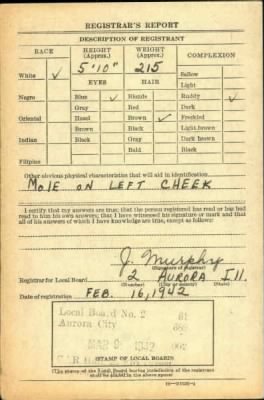 REGISTRAR'S REPORT
DESCRIPTION OF REGISTRANT
RACE HEIGHT (Approx.) WEIGHT (Approx.) COMPLEXION
White ✓ 5' 10" 215 Sallow
EYES HAIR Light
Negro Blue ✓ Blonde Ruddy ✓
Gray Red Dark
Oriental Hazel Brown ✓ Freckled
Brown Black Light brown
Indian Black Gray Dark brown
Bald Black
Filipino
Other obvious physical characteristics that will aid in identification
MOLE ON LEFT CHEEK
I certify that my answers are true; that the person registered has read or has had
read to him his own answers; that I have witnessed his signature or mark and that
all of his answers of which I have knowledge are true, except as follows:
J. Murphy
(Signature of registrar)
Registrar for Local Board 2 AURORA Ill.
(Number) (City or county) (State)
Date of registration FEB. 16, 1942
Local Board No. 2
Aurora City
MAR 1942
STAMP OF LOCAL BOARD
(The stamp of the Local Board having jurisdiction of the registrant
shall be placed in the above space)